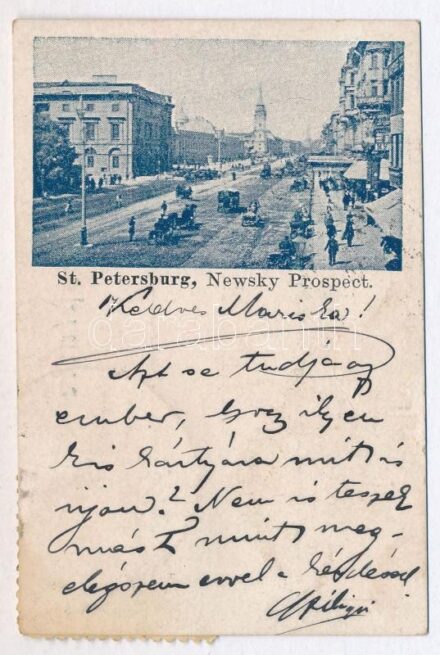 St. Petersburg, Newsky Prospect.
Kedves Mariska!
Azt se tudja az
ember, hogy ilyen
kis kártyára mit is
irjon? Nem is teszek
mást mint meg-
elégszem evvel a kérdéssel